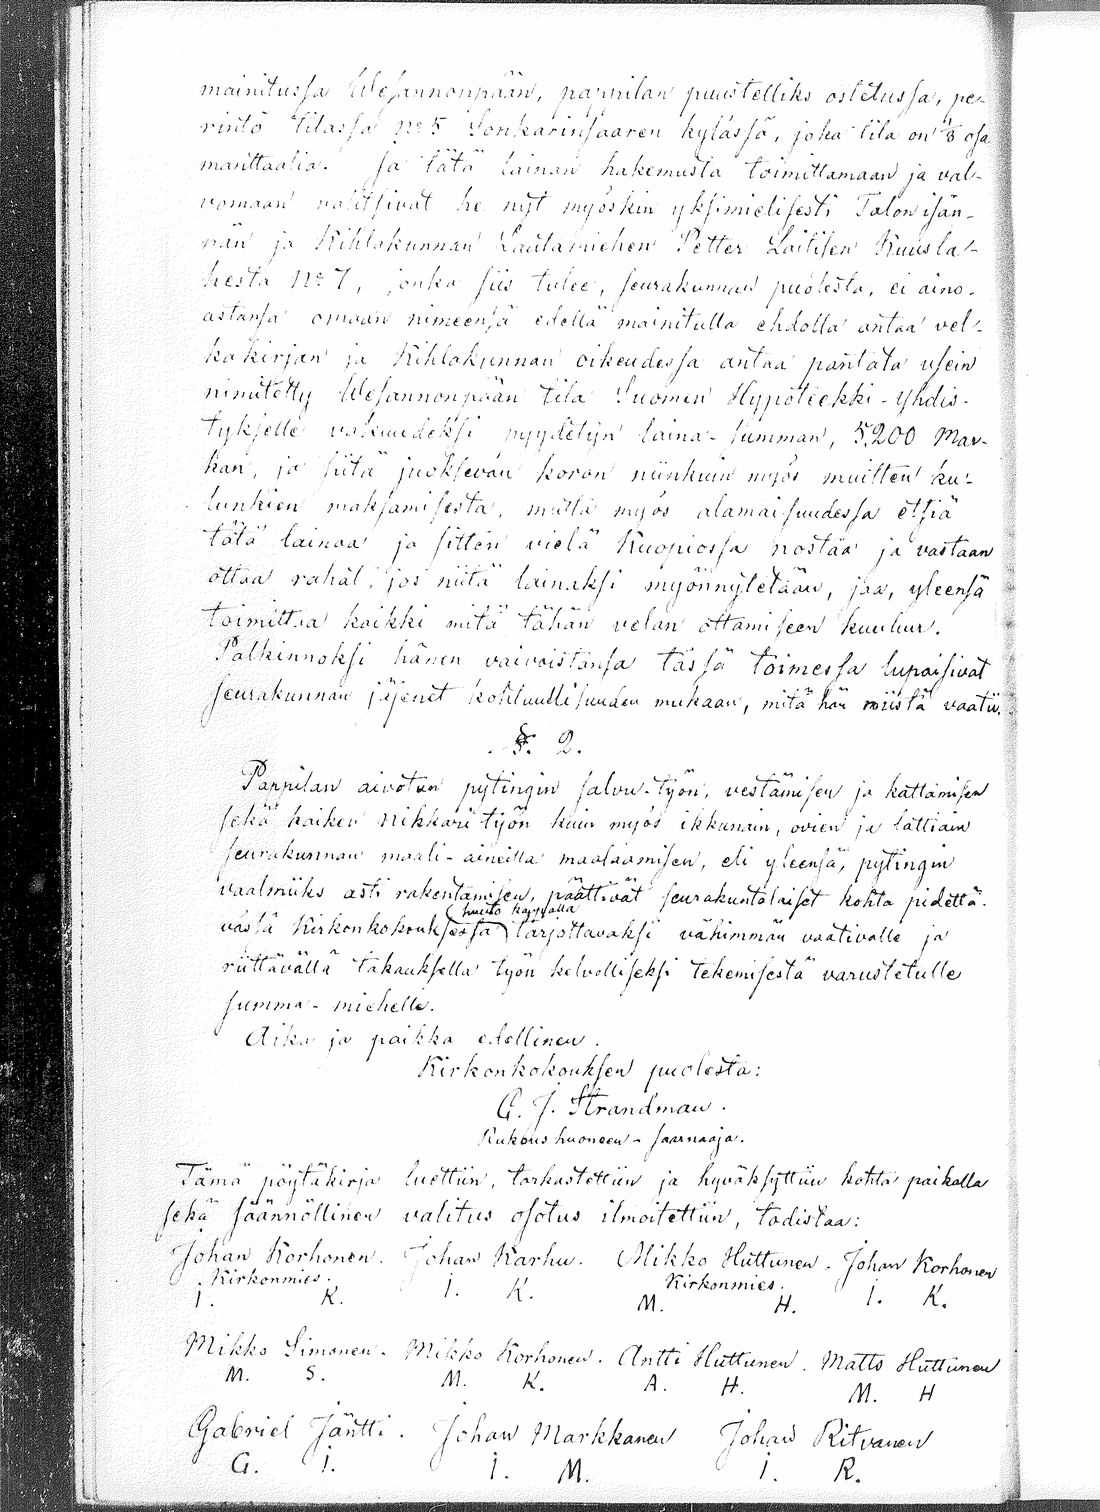 mainitussa Wesannonpään, pappilan puustelliks ostetussa, pe-
rintö tilassa No 5 Sonkarinsaaren kylässä, joka tila on 1/8 osa
manttaalia. Ja tätä lainan hakemusta toimittamaan ja val-
vomaan valitsivat he nyt myöskin yksimielisesti Talon isän-
nän ja Kihlakunnan Lautamiehen Petter Laitisen Kuusla-
hesta No 7, jonka siis tulee, seurakunnan puolesta, ei aino-
astansa omaan nimeensä edellä mainitulla ehdolla antaa vel-
kakirjan ja Kihlakunnan oikeudessa antaa pantata usein
nimitetty Wesannonpään tila Suomen Hypoteekki-Yhdis-
tykselle vakuudeksi pyydetyn laina-summan, 5,200 Mar-
kan, ja siitä juoksevan koron niinkuin myös muitten ku-
lunkien maksamisesta, mutta myös alamaisuudessa etsiä
tätä lainaa ja sitten vielä Kuopiossa nostaa ja vastaan
ottaa rahat, jos niitä lainaksi myönnytetään, jaa, yleensä
toimittaa kaikki mitä tähän velan ottamiseen kuuluu.
Palkinnoksi hänen vaivoistansa tässä toimessa lupaisivat
seurakunnan jäsenet kohtuullisuuden mukaan, mitä hän niistä vaatii.
§. 2.
Pappilan aivotun pytingin salvu-työn, vestämisen ja kattamisen
sekä kaiken nikkari työn kuin myös ikkunain, ovien ja lattiain
seurakunnan maali-aineilla maalaamisen, eli yleensä, pytingin
vaalmiiks asti rakentamisen, päättivät seurakuntalaiset kohta pidettä-
(huuto kaupalla
vässä Kirkonkokouksessa) tarjottavaksi vähimmän vaativalle ja
riittävällä takauksella työn kelvolliseksi tekemisestä varustetulle
summa-miehelle.
Aika ja paikka edellinen.
Kirkonkokouksen puolesta:
G. J. Strandman.
Rukous huoneen-saarnaaja.
Tämä pöytäkirja luettiin, tarkastettiin ja hyväksyttiin kohta paikalla
sekä säännöllinen valitus osotus ilmoitettiin, todistaa:
Johan Korhonen. Johan Karhu. Mikko Huttunen. Johan Korhonen
Kirkonmies. Kirkonmies.
I. K. I. K. M. H. I. K.
Mikko Simonen. Mikko Korhonen. Antti Huttunen. Matts Huttunen
M. S. M. K. A. H. M. H
Gabriel Jäntti. Johan Markkanen Johan Ritvanen
G. I. I. M. I. R.